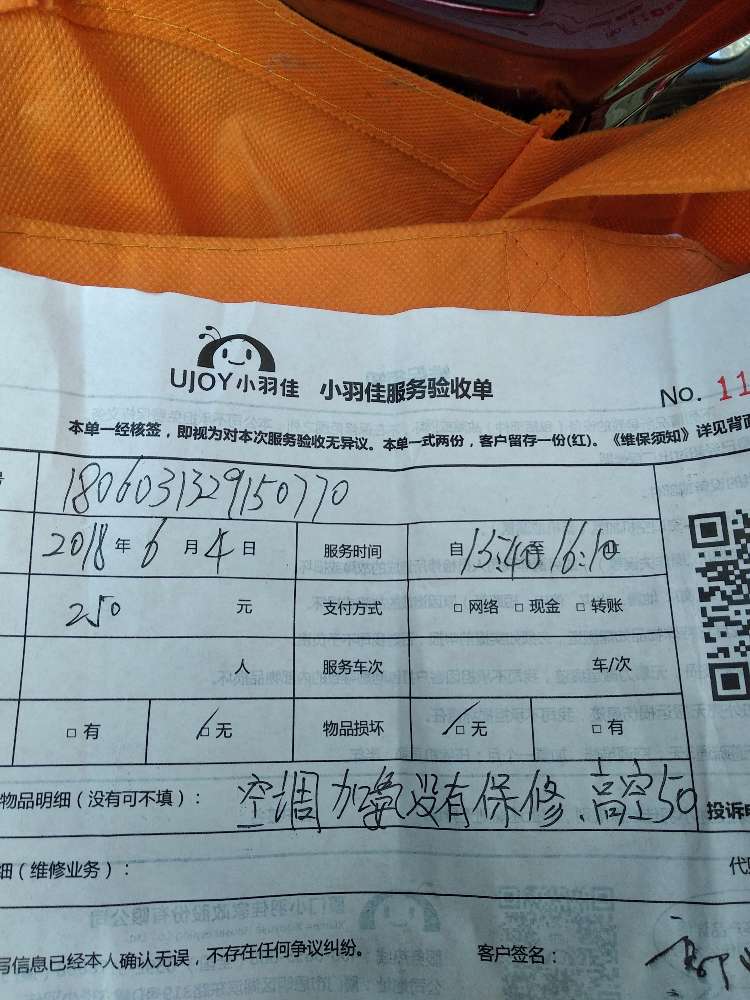 UJOY小羽佳 小羽佳服务验收单
No. 11
本单一经核签，即视为对本次服务验收无异议。本单一式两份，客户留存一份(红)。《维保须知》详见背面
1806031329150770
2018年6月4日 服务时间 自15:40至16:10止
250 元 支付方式 □网络 □现金 □转账
人 服务车次 车/次
□有 □无 物品损坏 □无 □有
物品明细（没有可不填）： 空调加氟没有保修、高空50 投诉
细（维修业务）：
写信息已经本人确认无误，不存在任何争议纠纷。 客户签名：